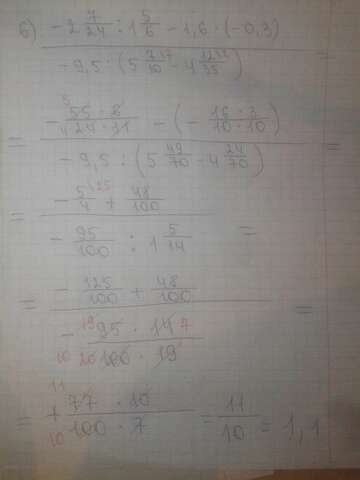 б) -2 7/24 : 1 5/6 - 1,6 · (-0,3)
-9,5 : (5 7/10 - 4 12/35)
= - 55 · 6 / 24 · 11 - (- 16 · 3 / 10 · 10) =
-9,5 : (5 49/70 - 4 24/70)
= - 5/4 + 48/100 =
- 95/100 : 1 5/14
= - 125/100 + 48/100 =
- 95 · 14 7 / 20 100 · 19
= + 77 · 10 / 100 · 7 = 11/10 = 1,1